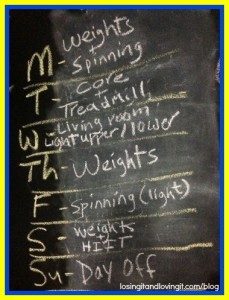 weights
+
M - Spinning
Core
+
T - Treadmill,
Living room
W - Light upper/lower
Th - Weights
F - Spinning (light)
weights
S - HIIT
Su - Day Off
losingitandlovingit.com/blog